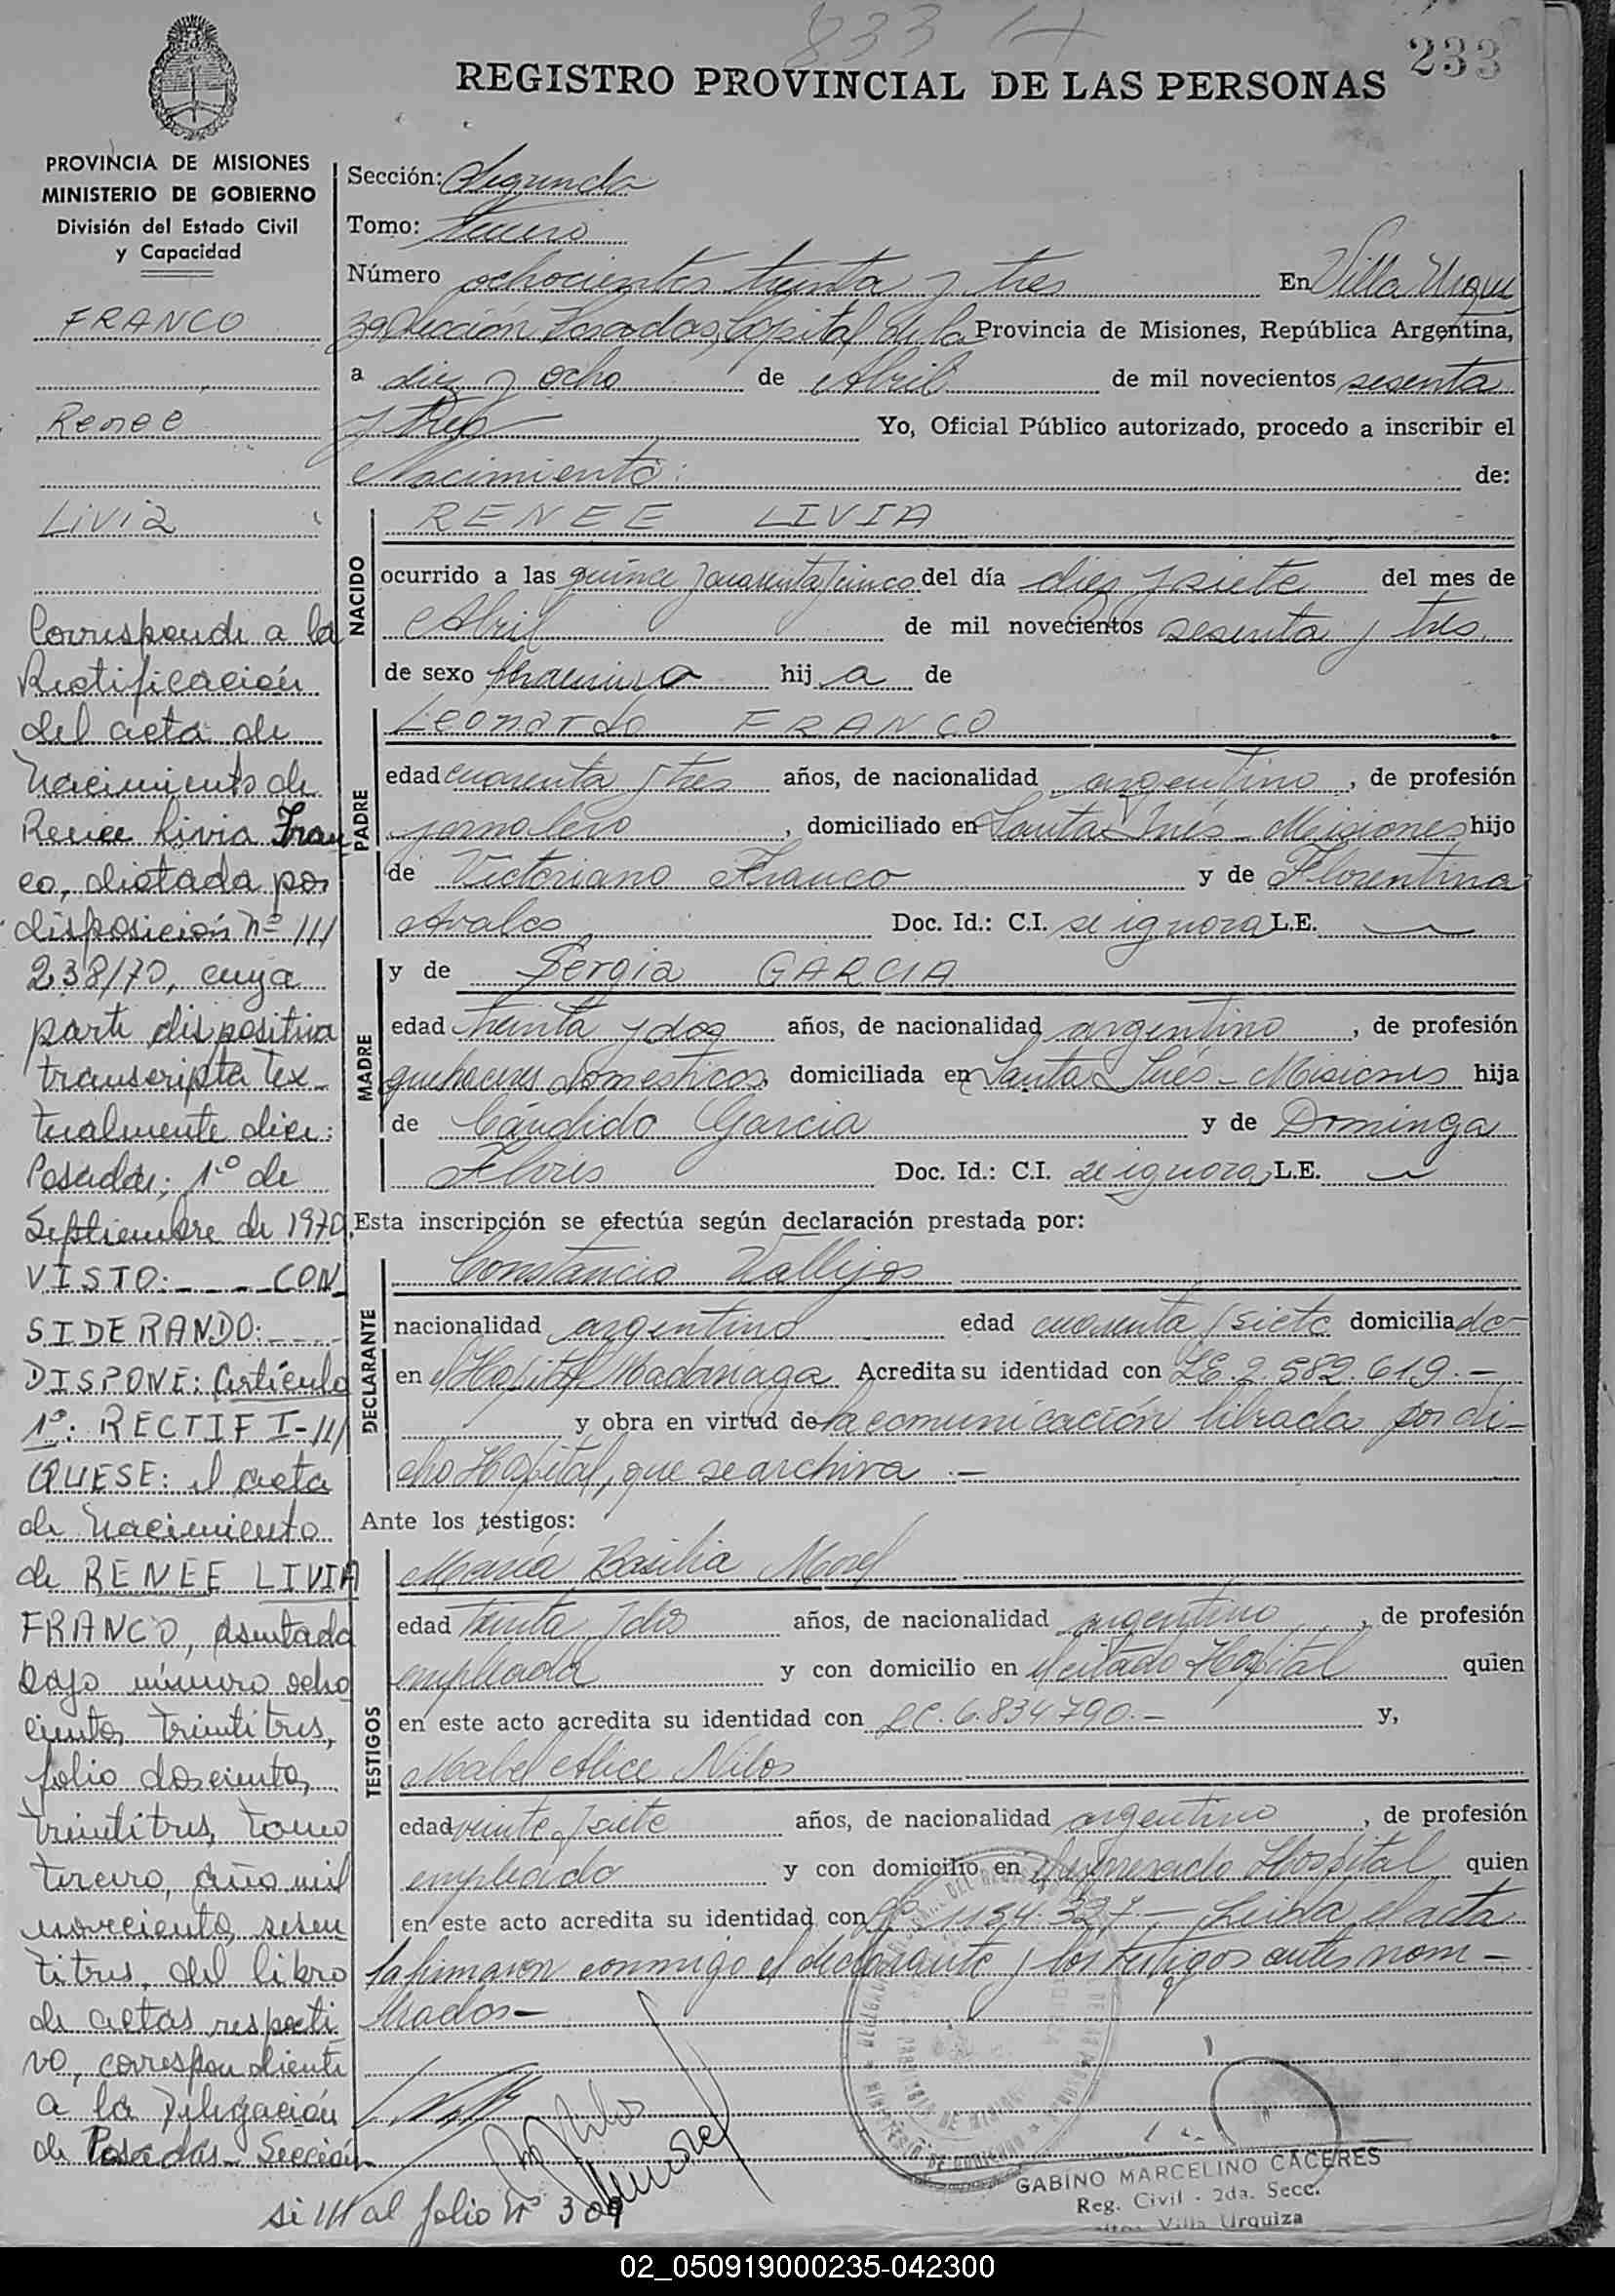 833
233
REGISTRO PROVINCIAL DE LAS PERSONAS
PROVINCIA DE MISIONES
MINISTERIO DE GOBIERNO
División del Estado Civil
y Capacidad
FRANCO
Renee
Livia
Corresponde a la
Rectificación
del acta de
Nacimiento de
Renee Livia Fran
co, dictada por
disposición Nº ///
238/70, cuya
parte dispositiva
transcripta tex-
tualmente dice:
Posadas, 1º de
Septiembre de 1970.
VISTO: _ _ _ CON
SIDERANDO: _ _ _
DISPONE: Artículo
1º: RECTIFI-///
QUESE: el acta
de Nacimiento
de RENEE LIVIA
FRANCO, asentada
bajo número ocho
cientos treintitres,
folio doscientos
treintitres, tomo
tercero, año mil
novecientos sesen
titres, del libro
de actas respecti
vo, correspondiente
a la Delegación
de Posadas - Sección
si /// al folio Nº 309
Sección: Segunda
Tomo: tercero
Número ochocientos treinta y tres En Villa Urqui
za Sección Posadas, Capital de la Provincia de Misiones, República Argentina,
a diez y ocho de Abril de mil novecientos sesenta
y tres Yo, Oficial Público autorizado, procedo a inscribir el
Nacimiento: de:
NACIDO
RENEE LIVIA
ocurrido a las quince y cuarenta y cinco del día diez y siete del mes de
Abril de mil novecientos sesenta y tres
de sexo femenino hij a de
PADRE
Leonardo FRANCO
edad cuarenta y tres años, de nacionalidad argentino, de profesión
jornalero, domiciliado en Santa Inés - Misiones hijo
de Victoriano Franco y de Florentina
Avalos Doc. Id.: C.I. se ignora L.E.
MADRE
y de Sergia GARCIA
edad treinta y dos años, de nacionalidad argentino, de profesión
quehaceres domesticos, domiciliada en Santa Inés - Misiones hija
de Cándido Garcia y de Dominga
Flores Doc. Id.: C.I. se ignora L.E.
Esta inscripción se efectúa según declaración prestada por:
DECLARANTE
Constancio Vallejos
nacionalidad argentino edad cuarenta y siete domiciliado
en el Hospital Madariaga Acredita su identidad con L.E. 2.582.619.-
y obra en virtud de la comunicación librada por di-
cho Hospital, que se archiva.-
Ante los testigos:
TESTIGOS
María Basilia
edad treinta y dos años, de nacionalidad argentino, de profesión
empleada y con domicilio en el citado Hospital quien
en este acto acredita su identidad con L.C. 6.834.790.- y,
Mabel Alice
edad veinte y siete años, de nacionalidad argentino, de profesión
empleada y con domicilio en el expresado Hospital quien
en este acto acredita su identidad con Leida el acta
la firmaron conmigo el declarante y los testigos antes nom-
brados-
GABINO MARCELINO CACERES
Reg. Civil - 2da. Secc.
Villa Urquiza
02_050919000235-042300